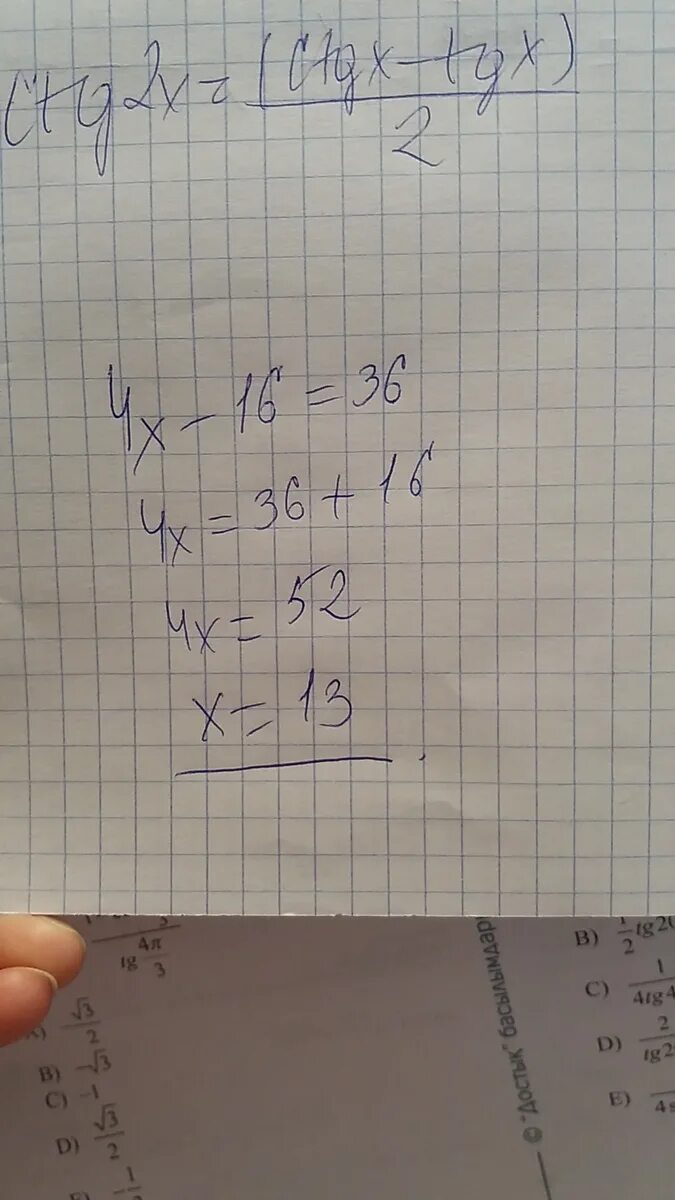 ctg2x = (ctgx - tgx)
2
4x - 16 = 36
4x = 36 + 16
4x = 52
x = 13
tg 4π
3
√3
2
B) -√3
C) -1
D) √3
2
© "Достык" басылымдар
B) 1/2 tg2
C) 1
4tg4
D) 2
tg2
E)